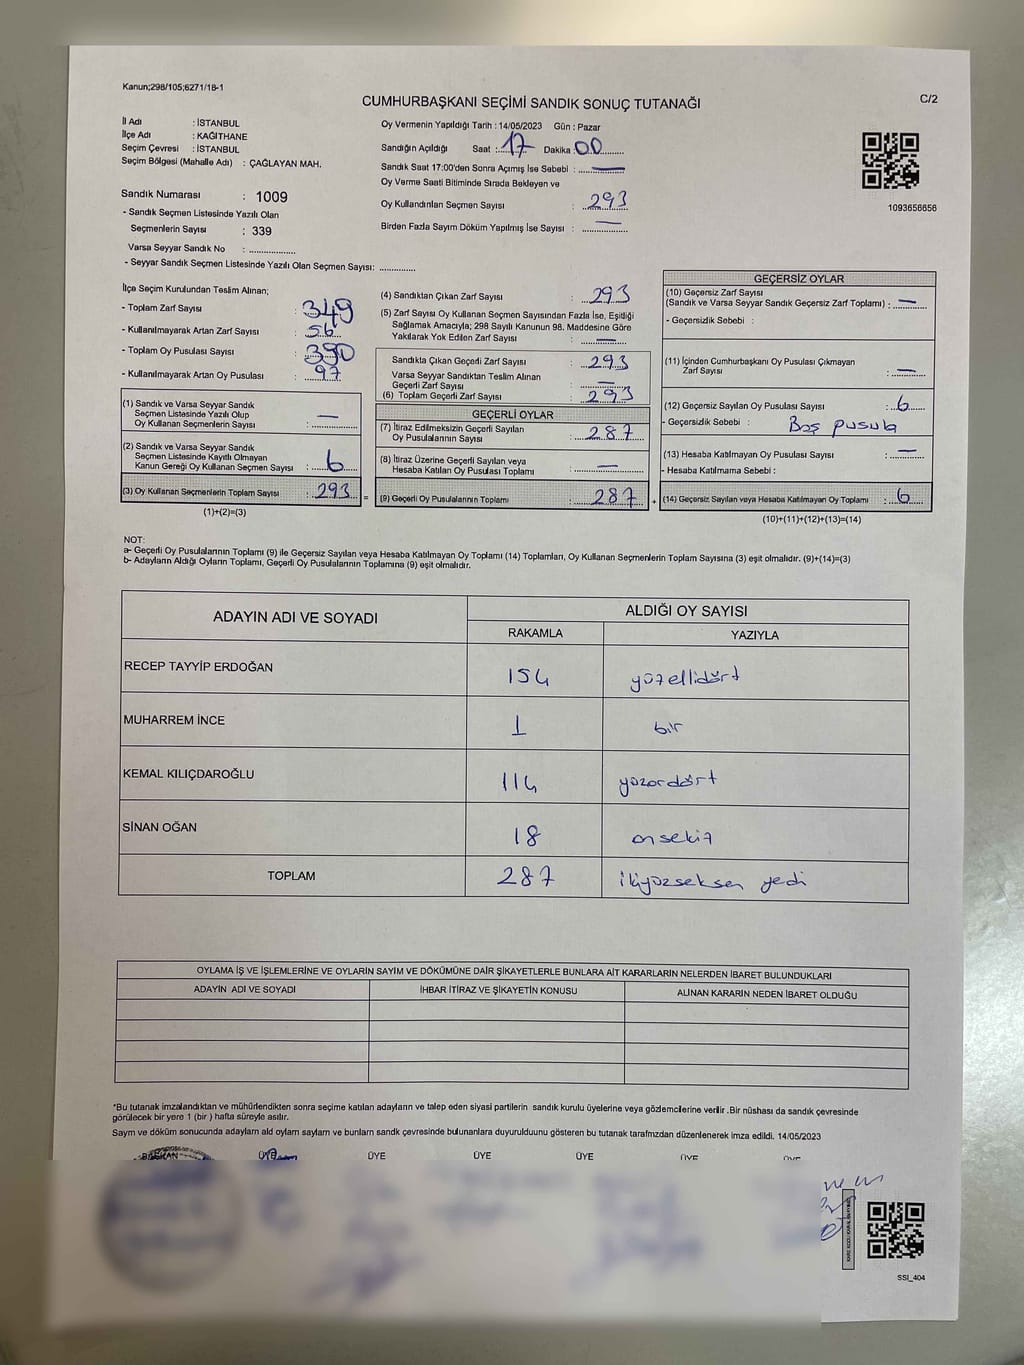 Kanun;298/105;6271/18-1
CUMHURBAŞKANI SEÇİMİ SANDIK SONUÇ TUTANAĞI
C/2
İl Adı : İSTANBUL
İlçe Adı : KAĞITHANE
Seçim Çevresi : İSTANBUL
Seçim Bölgesi (Mahalle Adı) : ÇAĞLAYAN MAH.
Sandık Numarası : 1009
- Sandık Seçmen Listesinde Yazılı Olan
Seçmenlerin Sayısı : 339
Varsa Seyyar Sandık No : ..............
- Seyyar Sandık Seçmen Listesinde Yazılı Olan Seçmen Sayısı: ..............
Oy Vermenin Yapıldığı Tarih : 14/05/2023 Gün : Pazar
Sandığın Açıldığı Saat : 17 Dakika 00
Sandık Saat 17:00'den Sonra Açımış İse Sebebi : —
Oy Verme Saati Bitiminde Sırada Bekleyen ve
Oy Kullandırılan Seçmen Sayısı : 293
Birden Fazla Sayım Döküm Yapılmış İse Sayısı : —
1093656656
İlçe Seçim Kurulundan Teslim Alınan;
- Toplam Zarf Sayısı : 349
- Kullanılmayarak Artan Zarf Sayısı : 56
- Toplam Oy Pusulası Sayısı : 390
- Kullanılmayarak Artan Oy Pusulası : 97
(1) Sandık ve Varsa Seyyar Sandık
Seçmen Listesinde Yazılı Olup
Oy Kullanan Seçmenlerin Sayısı : —
(2) Sandık ve Varsa Seyyar Sandık
Seçmen Listesinde Kayıtlı Olmayan
Kanun Gereği Oy Kullanan Seçmen Sayısı : 6
(3) Oy Kullanan Seçmenlerin Toplam Sayısı : 293 =
(1)+(2)=(3)
(4) Sandıktan Çıkan Zarf Sayısı : 293
(5) Zarf Sayısı Oy Kullanan Seçmen Sayısından Fazla İse, Eşitliği
Sağlamak Amacıyla; 298 Sayılı Kanunun 98. Maddesine Göre
Yakılarak Yok Edilen Zarf Sayısı : —
Sandıkta Çıkan Geçerli Zarf Sayısı : 293
Varsa Seyyar Sandıktan Teslim Alınan
Geçerli Zarf Sayısı : —
(6) Toplam Geçerli Zarf Sayısı : 293
GEÇERLİ OYLAR
(7) İtiraz Edilmeksizin Geçerli Sayılan
Oy Pusulalarının Sayısı : 287
(8) İtiraz Üzerine Geçerli Sayılan veya
Hesaba Katılan Oy Pusulası Toplamı : —
(9) Geçerli Oy Pusulalarının Toplamı : 287 +
GEÇERSİZ OYLAR
(10) Geçersiz Zarf Sayısı
(Sandık ve Varsa Seyyar Sandık Geçersiz Zarf Toplamı) : —
- Geçersizlik Sebebi :
(11) İçinden Cumhurbaşkanı Oy Pusulası Çıkmayan
Zarf Sayısı : —
(12) Geçersiz Sayılan Oy Pusulası Sayısı : 6
- Geçersizlik Sebebi : Boş pusula
(13) Hesaba Katılmayan Oy Pusulası Sayısı : —
- Hesaba Katılmama Sebebi :
(14) Geçersiz Sayılan veya Hesaba Katılmayan Oy Toplamı : 6
(10)+(11)+(12)+(13)=(14)
NOT:
a- Geçerli Oy Pusulalarının Toplamı (9) ile Geçersiz Sayılan veya Hesaba Katılmayan Oy Toplamı (14) Toplamları, Oy Kullanan Seçmenlerin Toplam Sayısına (3) eşit olmalıdır. (9)+(14)=(3)
b- Adayların Aldığı Oyların Toplamı, Geçerli Oy Pusulalarının Toplamına (9) eşit olmalıdır.
ADAYIN ADI VE SOYADI
ALDIĞI OY SAYISI
RAKAMLA YAZIYLA
RECEP TAYYİP ERDOĞAN 154 yüzellidört
MUHARREM İNCE 1 bir
KEMAL KILIÇDAROĞLU 114 yüzondört
SİNAN OĞAN 18 onsekiz
TOPLAM 287 ikiyüzseksen yedi
OYLAMA İŞ VE İŞLEMLERİNE VE OYLARIN SAYIM VE DÖKÜMÜNE DAİR ŞİKAYETLERLE BUNLARA AİT KARARLARIN NELERDEN İBARET BULUNDUKLARI
ADAYIN ADI VE SOYADI İHBAR İTİRAZ VE ŞİKAYETİN KONUSU ALINAN KARARIN NEDEN İBARET OLDUĞU
*Bu tutanak imzalandıktan ve mühürlendikten sonra seçime katılan adayların ve talep eden siyasi partilerin sandık kurulu üyelerine veya gözlemcilerine verilir .Bir nüshası da sandık çevresinde
görülecek bir yere 1 (bir ) hafta süreyle asılır.
Sayım ve döküm sonucunda adayların ald oyların sayların ve bunların sandk çevresinde bulunanlara duyurulduunu gösteren bu tutanak tarafmzdan düzenlenerek imza edildi. 14/05/2023
BAŞKAN ÜYE ÜYE ÜYE ÜYE ÜYE ÜYE
SSI_404